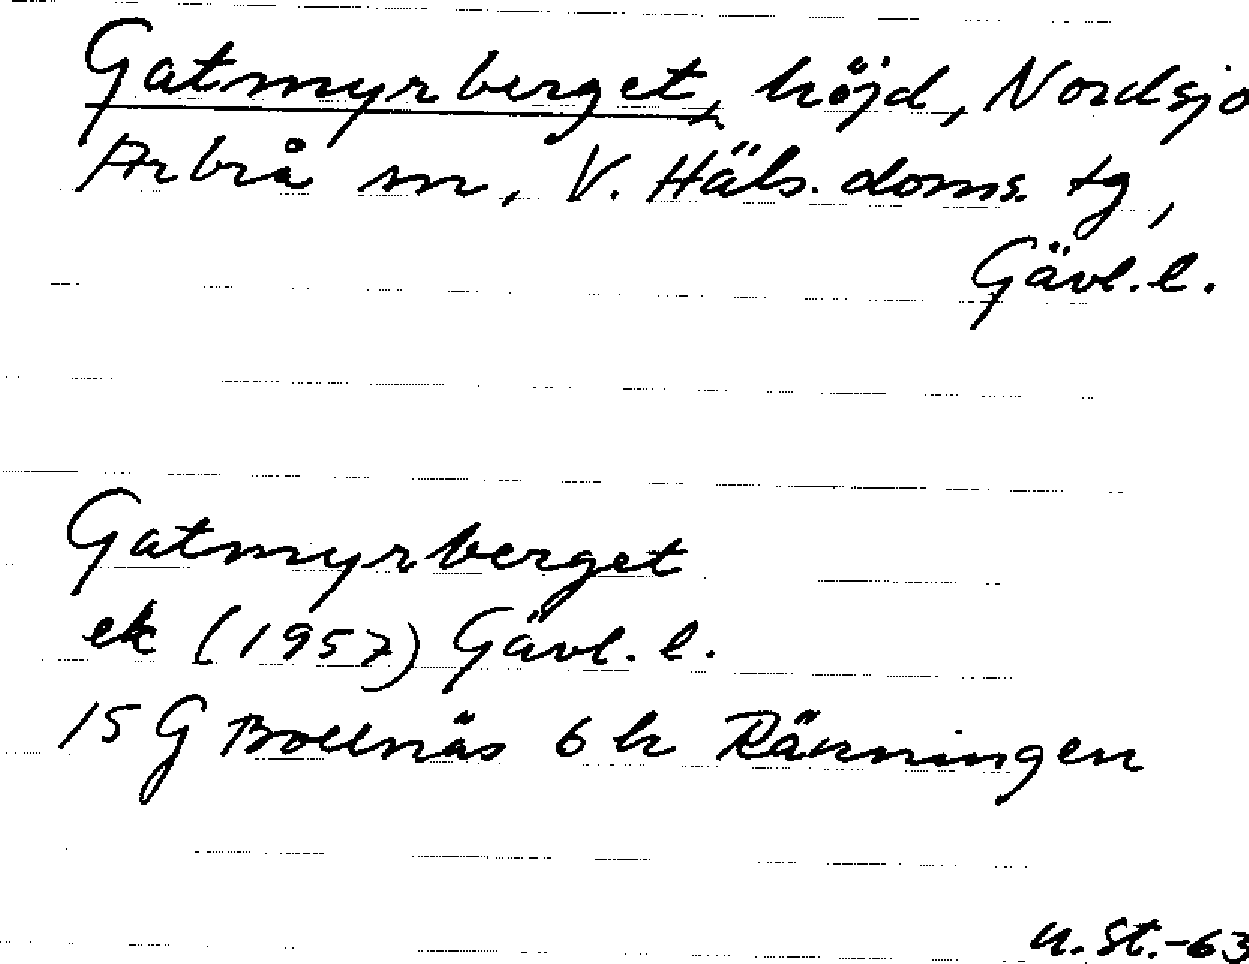 Gatmyrberget, höjd, Nordsjö
Arbrå sn, V. Häls. doms. tg,
Gävl. l.
Gatmyrberget
ek (1957) Gävl. l.
15 G Bollnäs 6 h Ränningen
u. St. -63